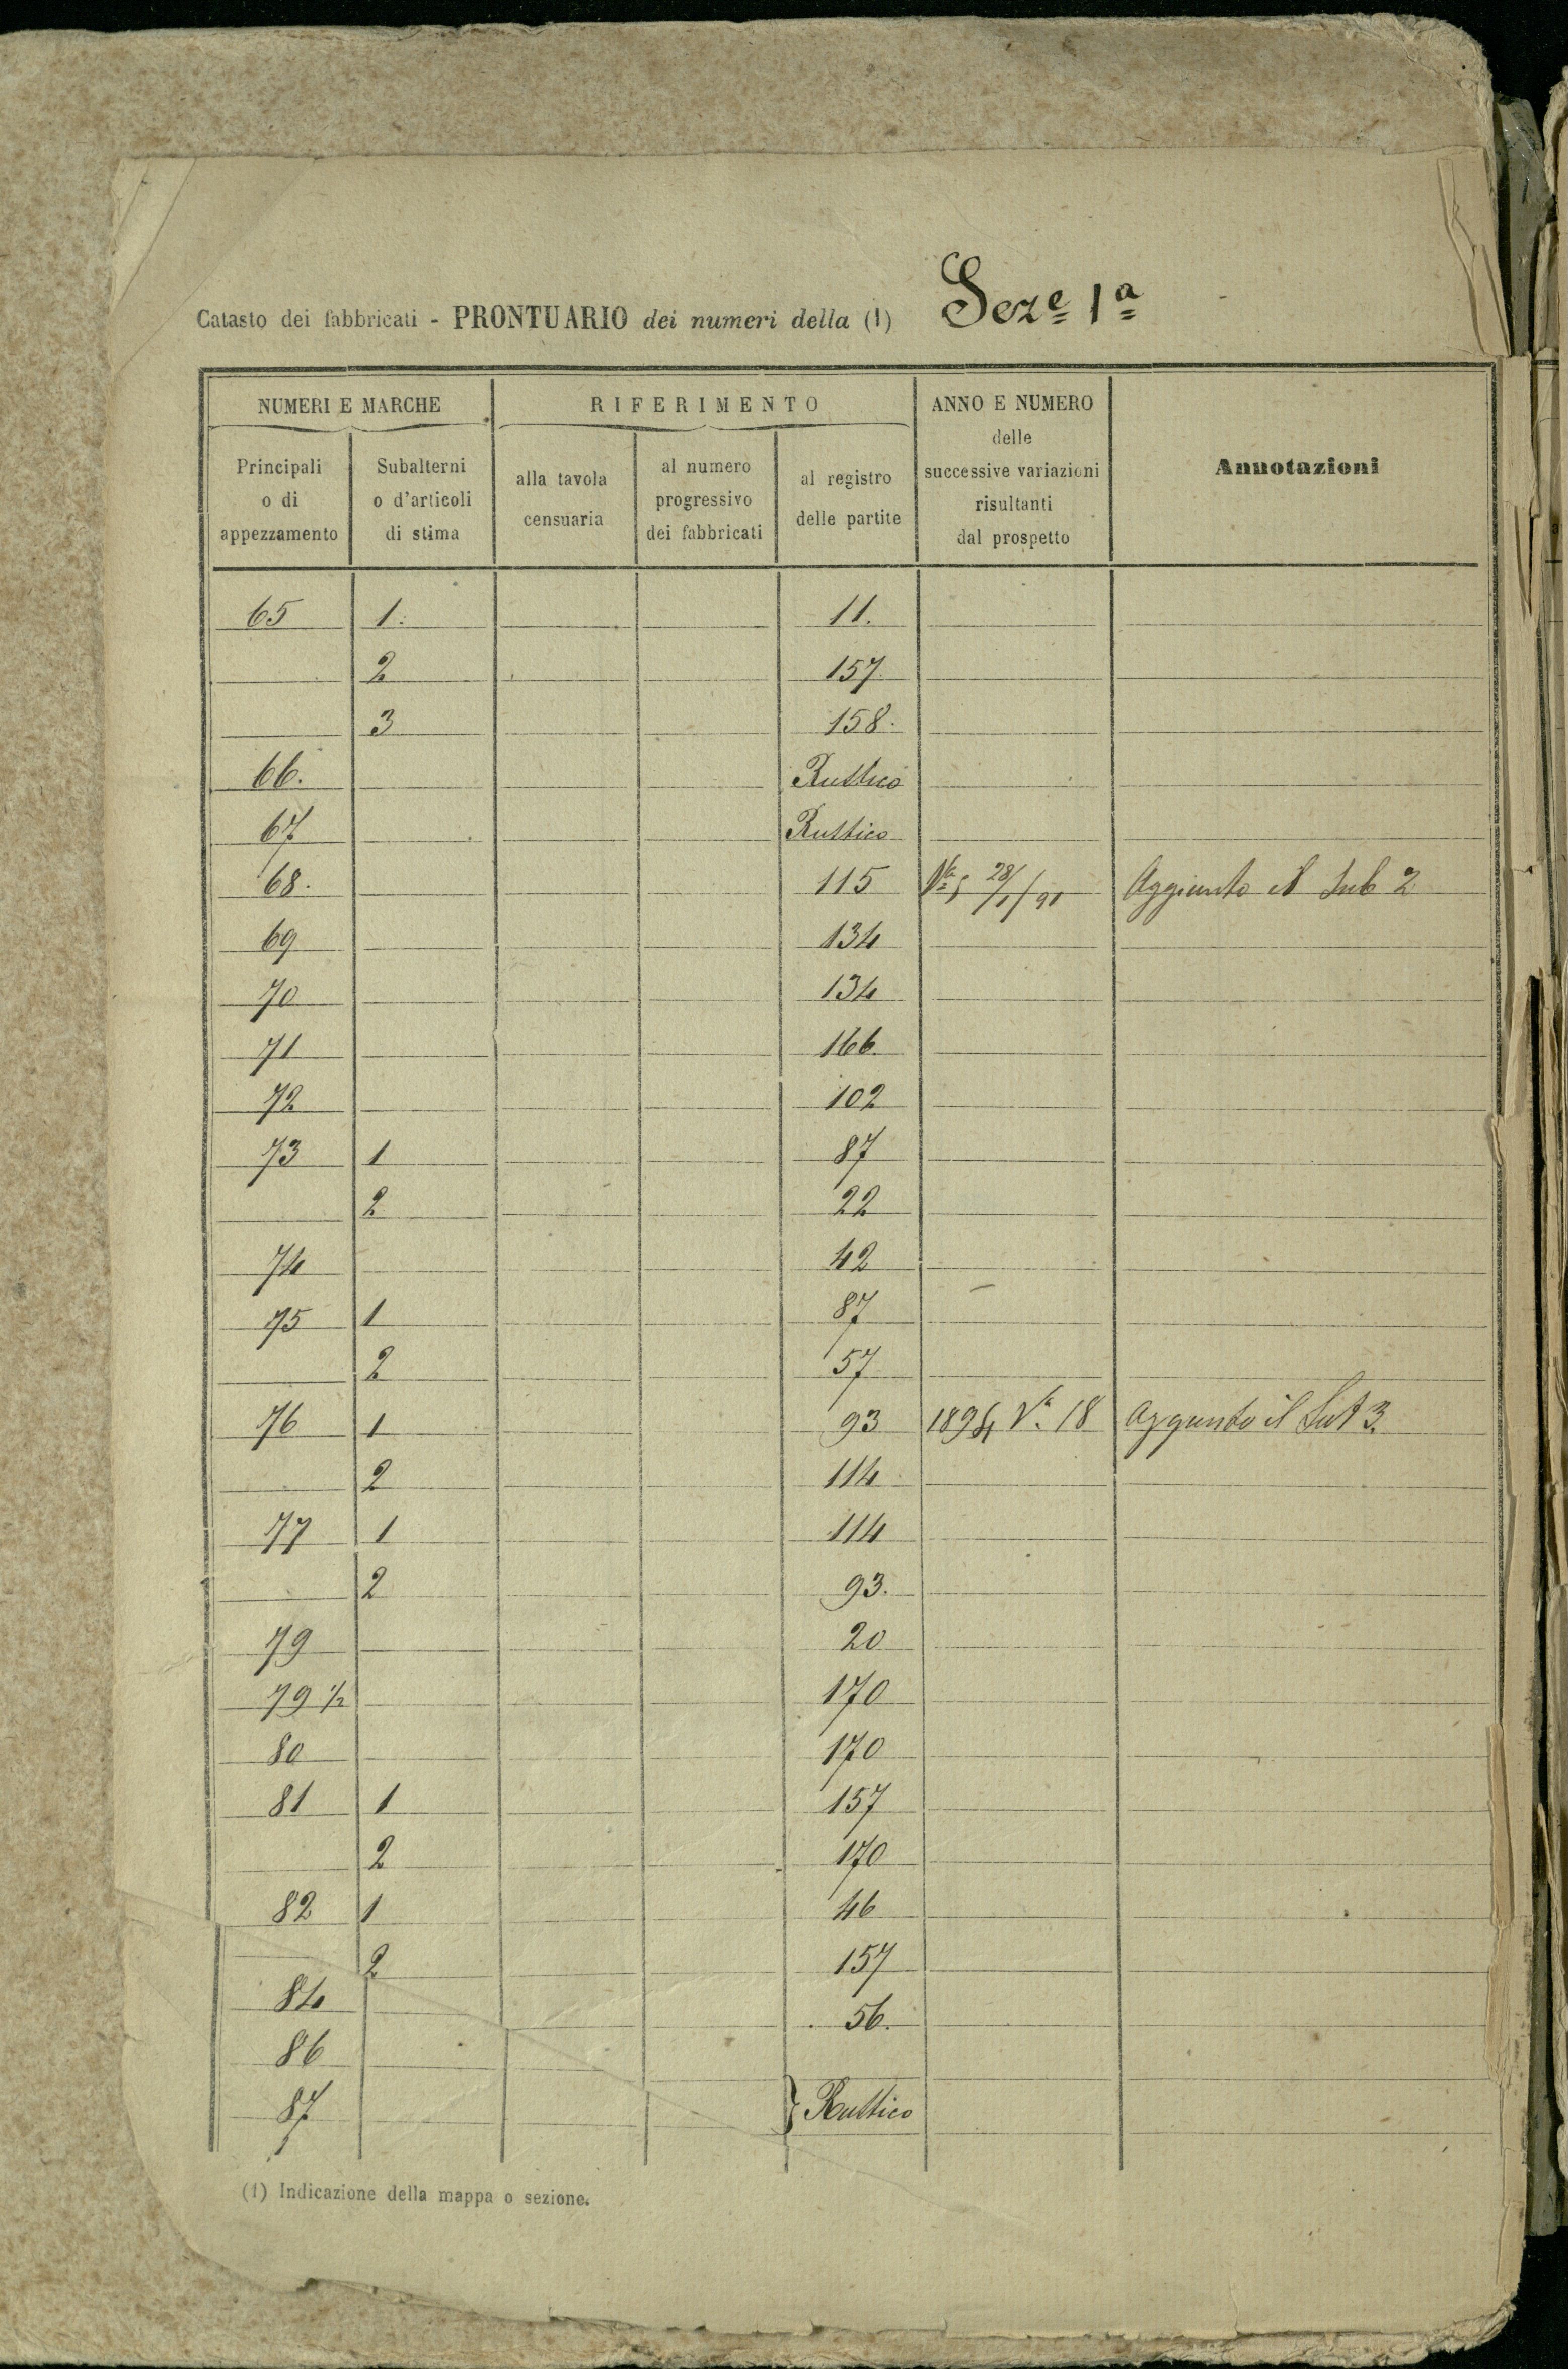 Catasto dei fabbricati - PRONTUARIO dei numeri della (1) Sez.e 1a
NUMERI E MARCHE RIFERIMENTO ANNO E NUMERO delle successive variazioni risultanti dal prospetto Annotazioni
Principali o di appezzamento Subalterni o d'articoli di stima alla tavola censuaria al numero progressivo dei fabbricati al registro delle partite
65 1. 11.
2 157
3 158.
66. Rustico
67 Rustico
68. 115 28/1/91 Aggiunto il Sub 2
69 134
70 134
71 166.
72 102
73 1 87
2 22
74 42
75 1 87
2 57
76 1 93 1894 Va 18 Aggiunto il Sub 3.
2 114
77 1 114
2 93.
79 20
79 1/2 170
80 170
81 1 157
2 170
82 1 46
2 157
84 56.
86
87 } Rustico
(1) Indicazione della mappa o sezione.